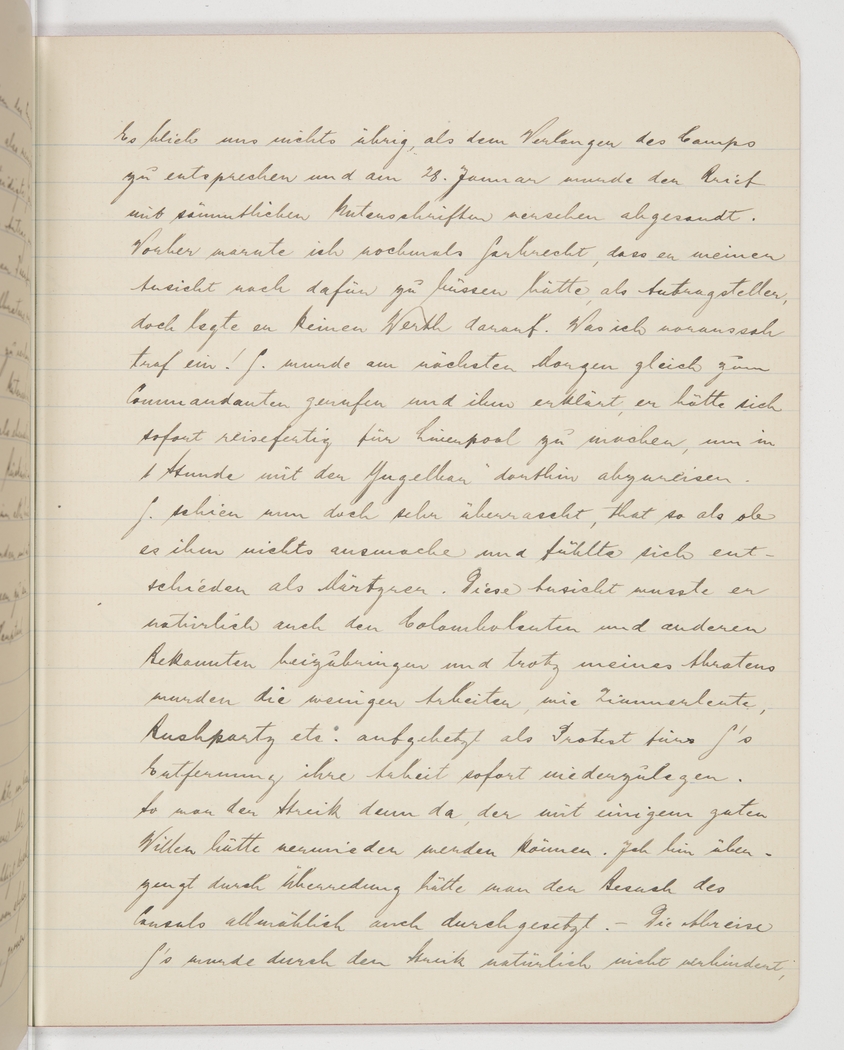 Es blieb uns nichts übrig, als dem Verlangen des Camps
zu entsprechen und am 28. Januar wurde der Brief
mit sämmtlichen Unterschriften versehen abgesandt.
Vorher warnte ich nochmals Garbrecht, dass er meiner
Ansicht nach dafür zu büssen hätte, als Antragsteller,
doch legte er keinen Werth darauf. Was ich voraussah
traf ein! G. wurde am nächsten Morgen gleich zum
Commandanten gerufen und ihm erklärt, er hätte sich
sofort reisefertig für Liverpool zu machen, um in
1 Stunde mit der "Yugelbar" dorthin abzureisen.
G. schien nun doch sehr überrascht, that so als ob
es ihm nichts ausmache und fühlte sich ent-
schieden als Märtyrer. Diese Ansicht wusste er
natürlich auch den Colomboleuten und anderen
Bekannten beizubringen und trotz meines Abratens
wurden die wenigen Arbeiter, wie Zimmerleute,
Bushparty etc. aufgehetzt als Protest fürs G's
Entfernung ihre Arbeit sofort niederzulegen.
So war der Streik denn da, der mit einigem guten
Willen hätte vermieden werden können. Ich bin über-
zeugt durch Überredung hätte man den Besuch des
Consuls allmählich auch durchgesetzt. – Die Abreise
G's wurde durch den Streik natürlich nicht verhindert,